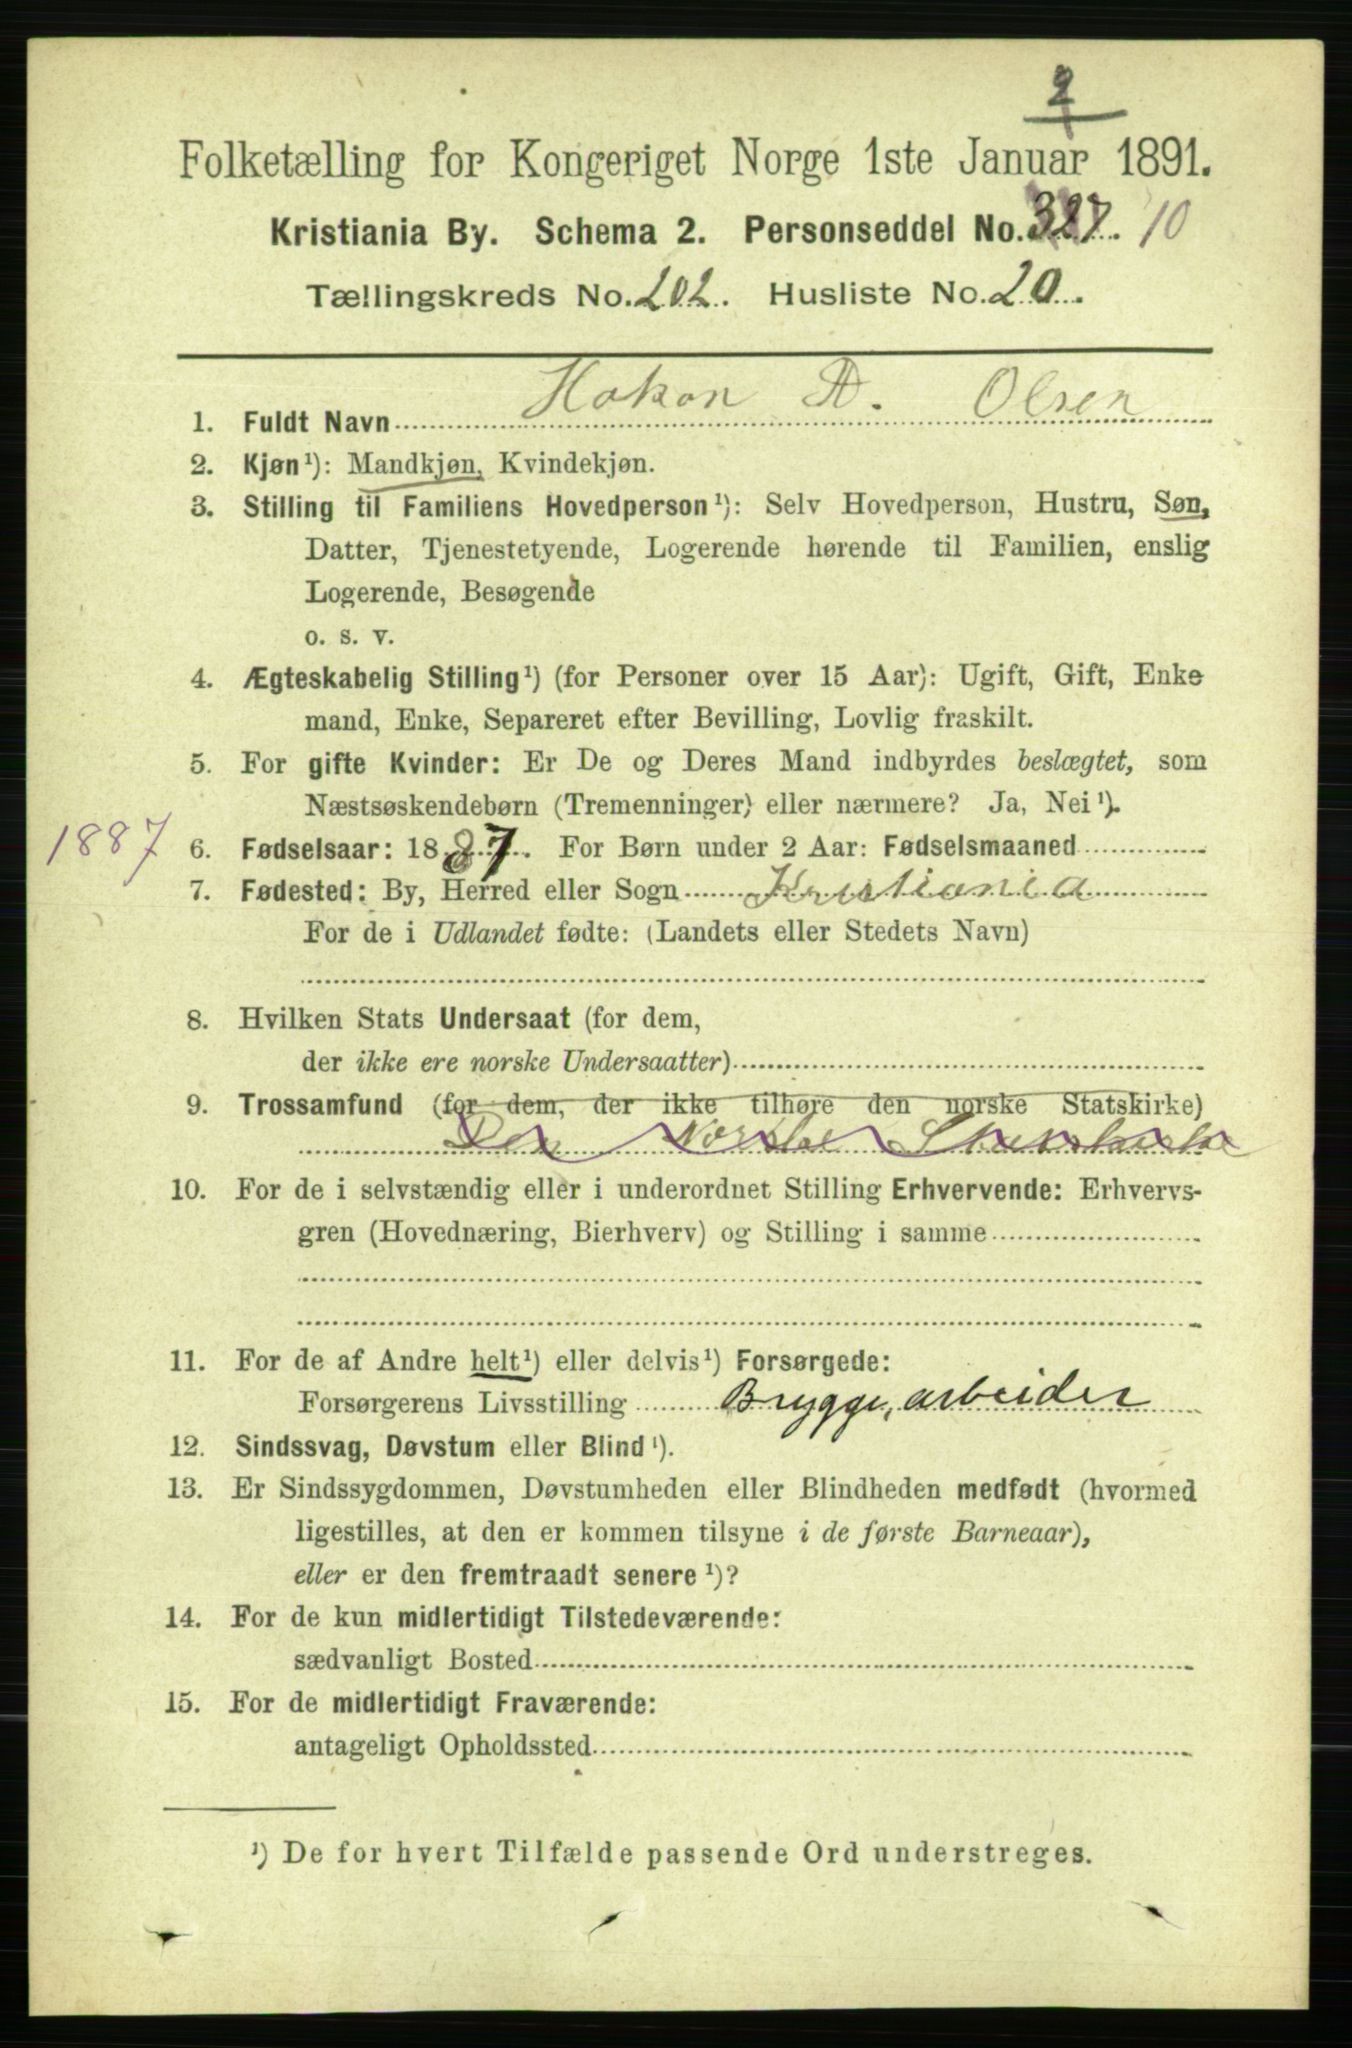 2
Folketælling for Kongeriget Norge 1ste Januar 1891.
Kristiania By. Schema 2. Personseddel No. 327. 10
Tællingskreds No. 202. Husliste No. 20.
1. Fuldt Navn Hakon A. Olsen
2. Kjøn¹): Mandkjøn, Kvindekjøn.
3. Stilling til Familiens Hovedperson¹): Selv Hovedperson, Hustru, Søn,
Datter, Tjenestetyende, Logerende hørende til Familien, enslig
Logerende, Besøgende
o. s. v.
4. Ægteskabelig Stilling¹) (for Personer over 15 Aar): Ugift, Gift, Enke
mand, Enke, Separeret efter Bevilling, Lovlig fraskilt.
5. For gifte Kvinder: Er De og Deres Mand indbyrdes beslægtet, som
Næstsøskendebørn (Tremenninger) eller nærmere? Ja, Nei¹).
1887 6. Fødselsaar: 1887. For Børn under 2 Aar: Fødselsmaaned
7. Fødested: By, Herred eller Sogn Kristiania
For de i Udlandet fødte: (Landets eller Stedets Navn)
8. Hvilken Stats Undersaat (for dem,
der ikke ere norske Undersaatter)
9. Trossamfund (for dem, der ikke tilhøre den norske Statskirke)
Den Norske Statskirke
10. For de i selvstændig eller i underordnet Stilling Erhvervende: Erhvervs-
gren (Hovednæring, Bierhverv) og Stilling i samme
11. For de af Andre helt¹) eller delvis¹) Forsørgede:
Forsørgerens Livsstilling Bryggearbeider
12. Sindssvag, Døvstum eller Blind¹).
13. Er Sindssygdommen, Døvstumheden eller Blindheden medfødt (hvormed
ligestilles, at den er kommen tilsyne i de første Barneaar),
eller er den fremtraadt senere¹)?
14. For de kun midlertidigt Tilstedeværende:
sædvanligt Bosted
15. For de midlertidigt Fraværende:
antageligt Opholdssted
¹) De for hvert Tilfælde passende Ord understreges.